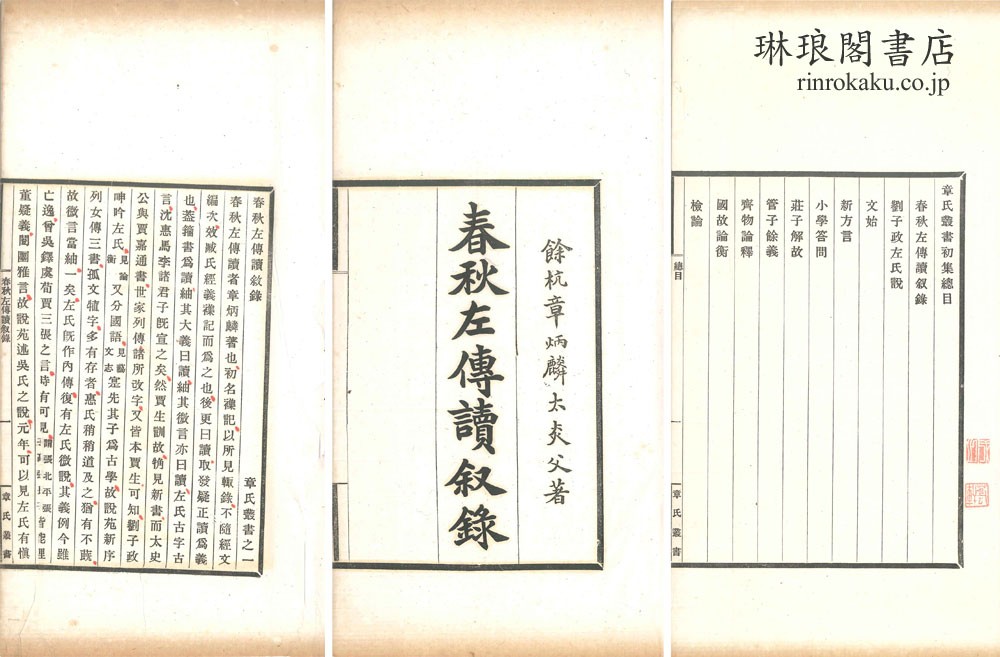 琳琅閣書店
rinrokaku.co.jp
章氏叢書初集總目
春秋左傳讀叙錄
劉子政左氏說
文始
新方言
小學答問
莊子解故
管子餘義
齊物論釋
國故論衡
檢論
總目
章氏叢書
餘杭章炳麟太炎父著
春秋左傳讀叙錄
春秋左傳讀叙錄 章氏叢書之一
春秋左傳讀者章炳麟著也初名襍記以所見輒錄不隨經文
編次效臧氏經義襍記而爲之也後更曰讀取發疑正讀爲義
也葢籀書爲讀紬其大義曰讀紬其微言亦曰讀左氏古字古
言沈惠馬李諸君子旣宣之矣然賈生訓故觕見新書而太史
公與賈嘉通書世家列傳諸所改字又皆本賈生可知劉子政
呻吟左氏見論衡又分國語見藝文志寔先其子爲古學故說苑新序
列女傳三書孤文犆字多有存者惠氏稍稍道及之猶有不蕆
故微言當紬一矣左氏旣作內傳復有左氏微說其義例今雖
亡逸曾吳鐸虞荀賈三張之言時有可見謂張北平張
董疑義闓圛雅言故說苑述吳氏之說元年可以見左氏有愼
春秋左傳讀叙錄
章氏叢書